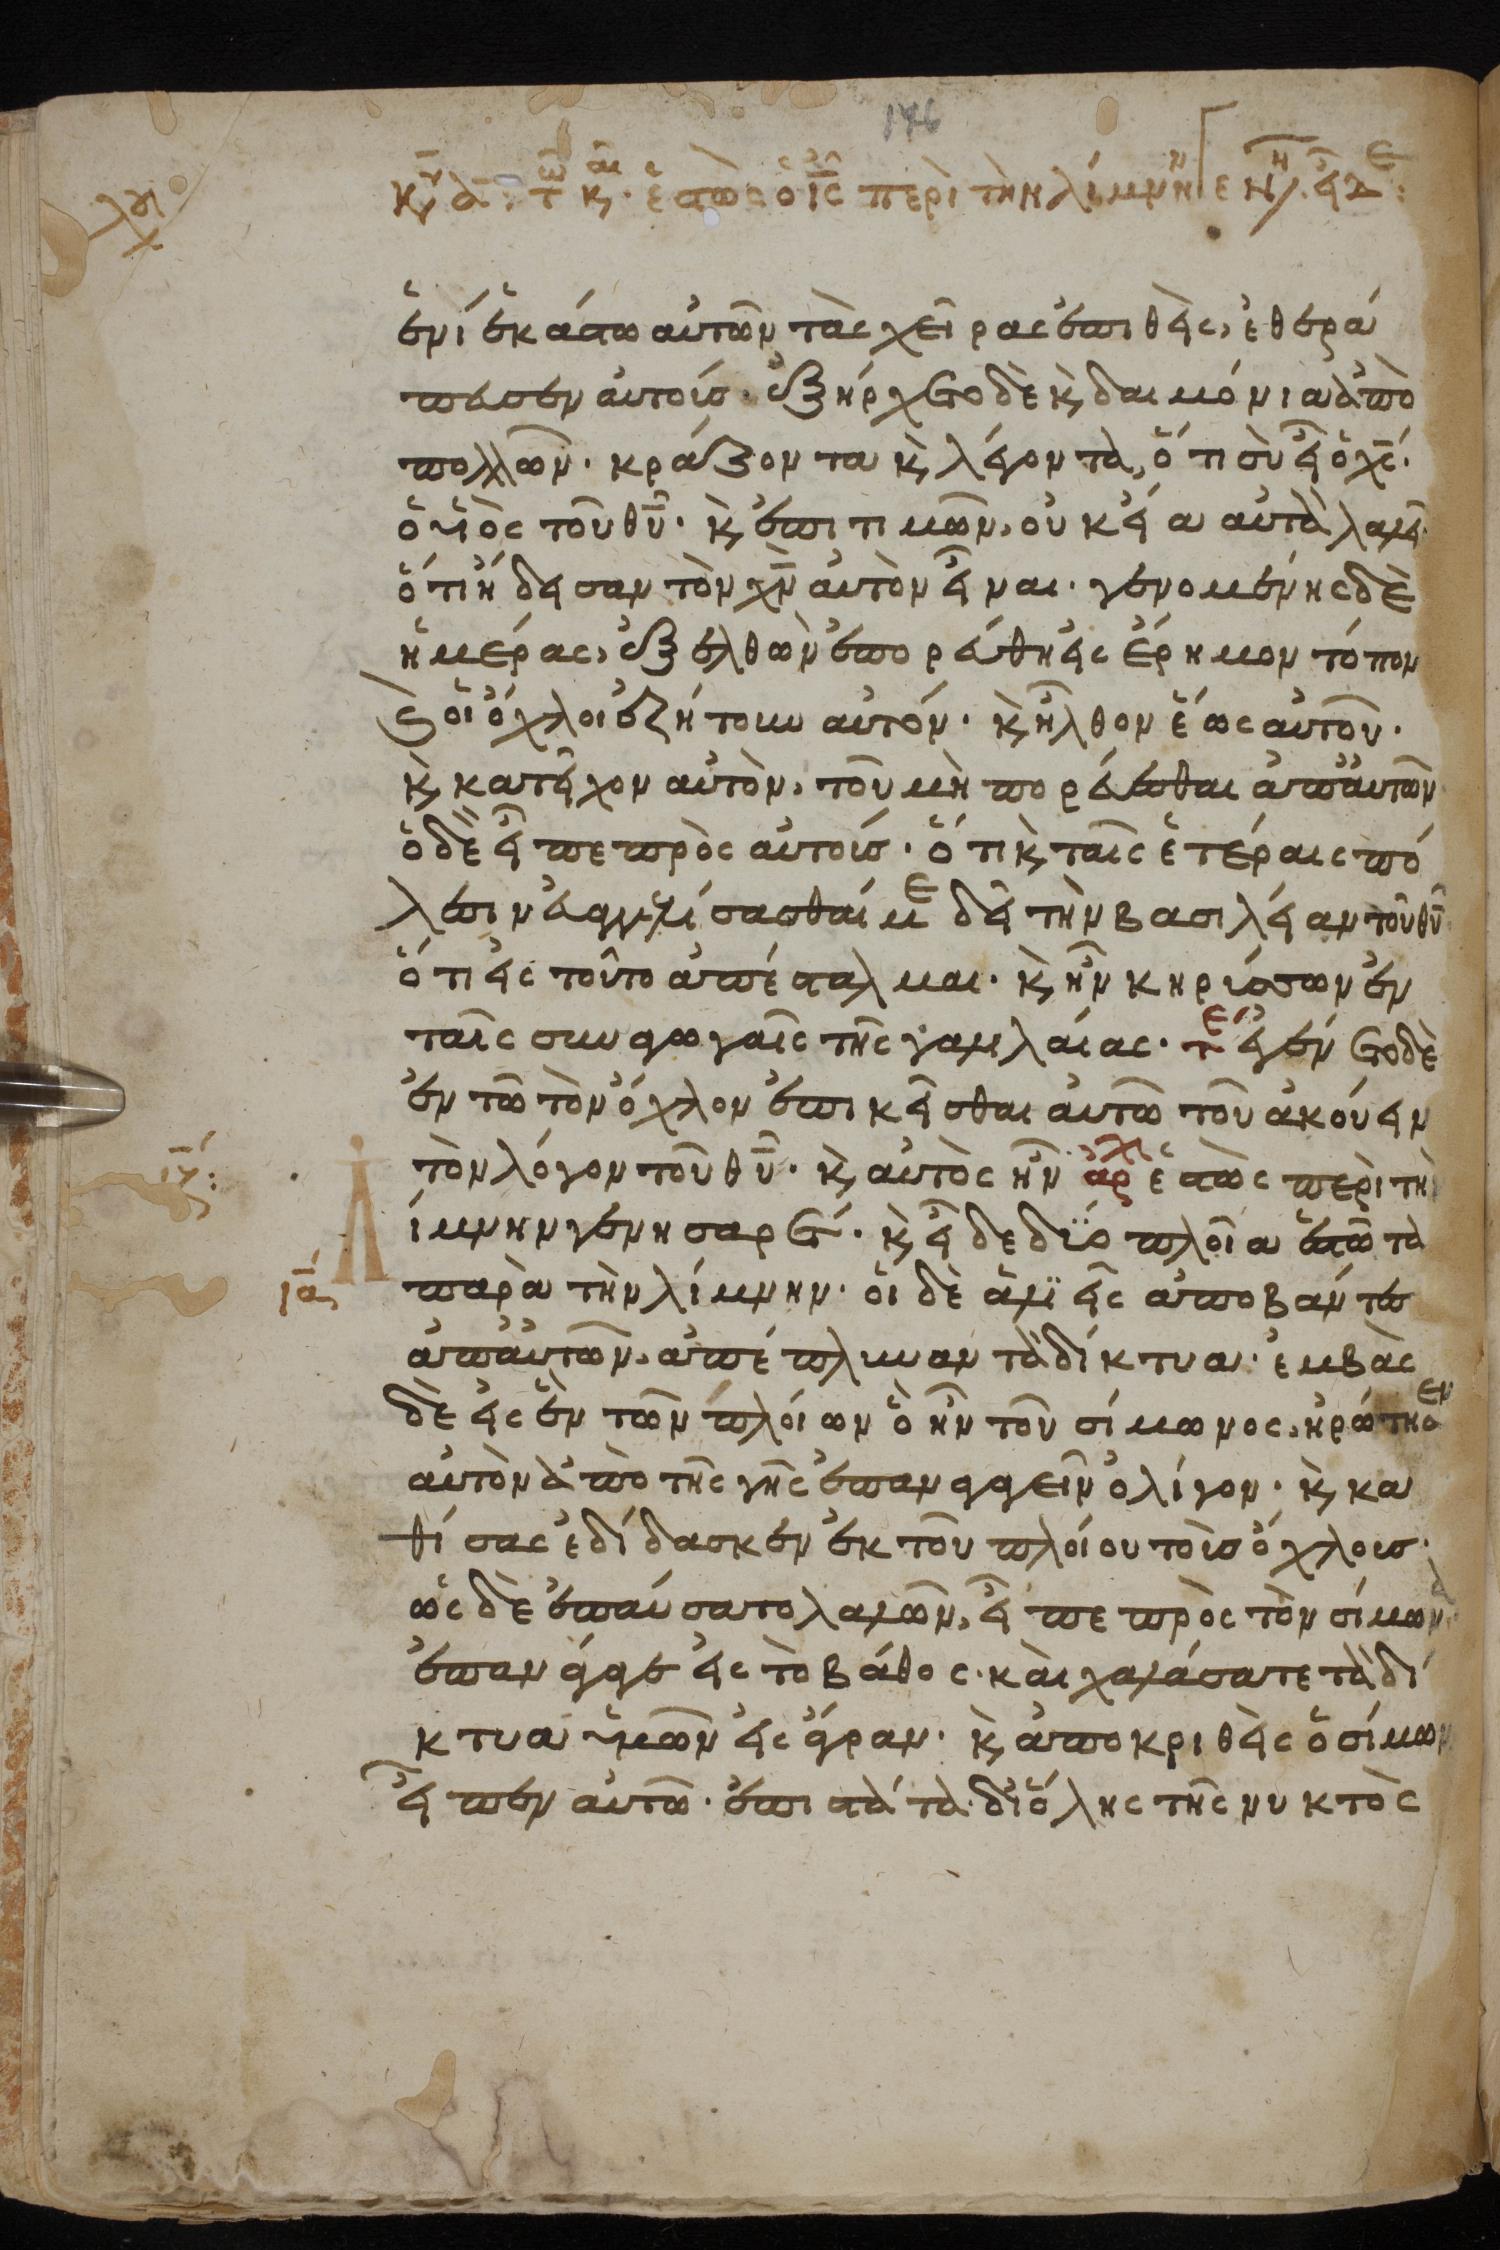 ἑστὼς ὁ ῑς̄ περὶ τὴν λίμνην
ἑνὶ ἑκάστω αὐτῶν τὰς χεῖρας ἐπιθεὶς, ἐθερά
πευσεν αὐτοίσ. ἐξήρχετο δὲ κ̀ δαιμόνια ἀπὸ
πολλῶν. κράζοντα κ̀ λέγοντα, ὅτι σὺ εἶ ὁ χ̄ς̄.
ὁ υἱὸς τοῦ θ̄ῡ. κ̀ ἐπιτιμῶν, οὐκ εἴα αὐτὰ λαλεῖ
ὅτι ἤδεισαν τὸν χ̄ν̄ αὐτὸν εἶναι. γενομένης δὲ
ἡμέρας, ἐξελθὼν ἐπορεύθη εἰς ἔρημον τόπον
κ̀ οἱ ὄχλοι ἐζήτουν αὐτόν. κ̀ ἦλθον ἕως αὐτοῦ.
κ̀ κατεῖχον αὐτὸν, τοῦ μὴ πορεύεσθαι ἀπ' αὐτῶν
ὁ δὲ εἶπε πρὸς αὐτοίσ. ὅτι κ̀ ταῖς ἑτέραις πό
λεσιν εὐαγγελίσασθαί με δεῖ τὴν βασιλείαν τοῦ θ̄ῡ
ὅτι εἰς τοῦτο ἀπέσταλμαι. κ̀ ἦν κηρύσσων ἐν
ταῖς συναγωγαῖς τῆς γαλιλαίας. τε ἐγένετο δὲ
ἐν τῶ τὸν ὄχλον ἐπικεῖσθαι αὐτῶ τοῦ ἀκούειν
τὸν λόγον τοῦ θ̄ῡ. κ̀ αὐτὸς ἦν αρχ ἑστὼς περὶ τὴν
λίμνην γεννησαρέτ. κ̀ εἶδε δύο πλοῖα ἑστῶτα
παρὰ τὴν λίμνην. οἱ δὲ ἁλιεῖς ἀποβάντες
ἀπ' αὐτῶν, ἀπέπλυναν τὰ δίκτυα. ἐμβὰς
δὲ εἰς ἓν τῶν πλοίων ὃ ἦν τοῦ σίμωνος, ἠρώτησεν
αὐτὸν ἀπὸ τῆς γῆς ἐπαναγαγεῖν ὀλίγον. κ̀ κα
θίσας ἐδίδασκεν ἐκ τοῦ πλοίου τοὺσ ὄχλουσ.
ὡς δὲ ἐπαύσατο λαλῶν, εἶπε πρὸς τὸν σίμωνα
ἐπανάγαγε εἰς τὸ βάθος. καὶ χαλάσατε τὰ δί
κτυα ὑμῶν εἰς ἄγραν. κ̀ ἀποκριθεὶς ὁ σίμων
εἶπεν αὐτῶ. ἐπιστάτα. δι' ὅλης τῆς νυκτὸς